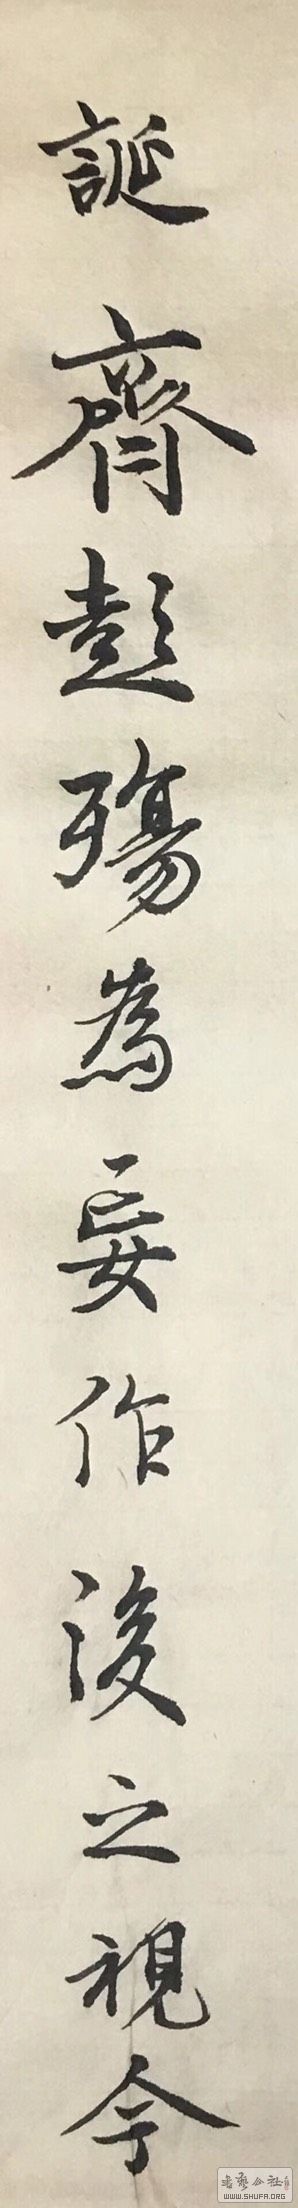 誕齊彭殤為妄作後之視今
書藝公社
WWW.SHUFA.ORG